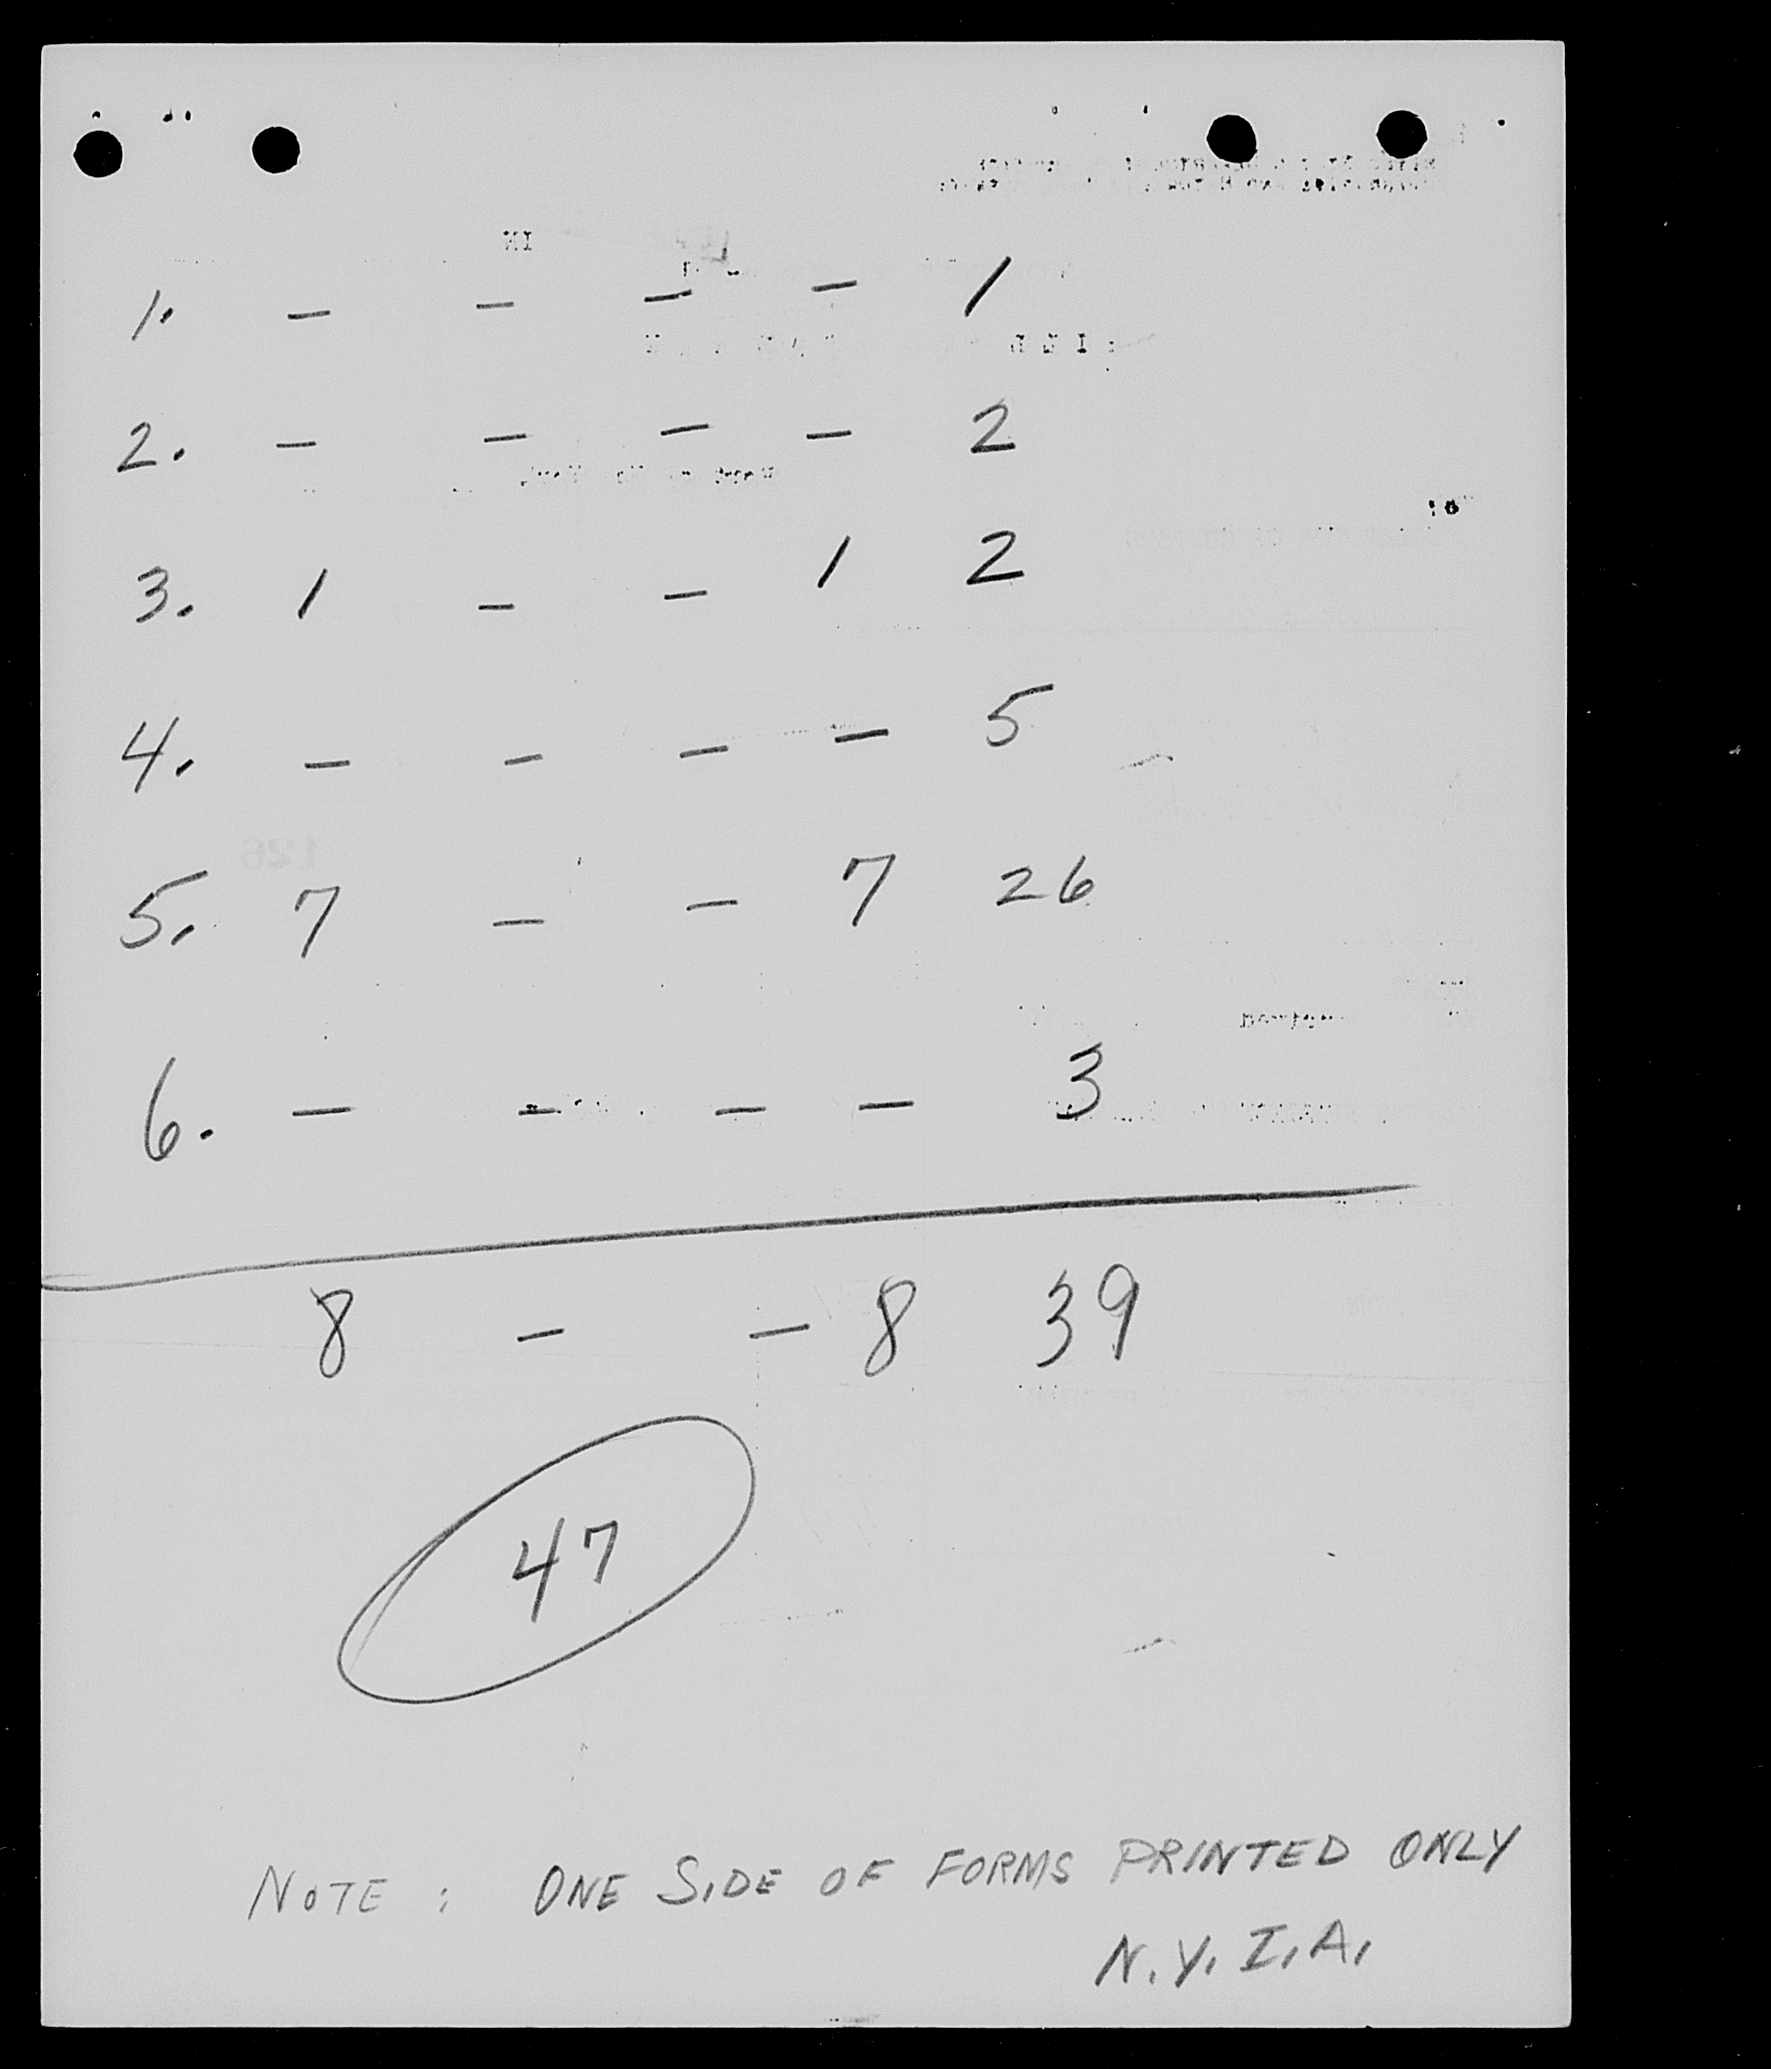 1. - - - - 1
2. - - - - 2
3. 1 - - 1 2
4. - - - - 5
5. 7 - - 7 26
6. - - - - 3
8 - - 8 39
47
NOTE : ONE SIDE OF FORMS PRINTED ONLY
N.Y.I.A.